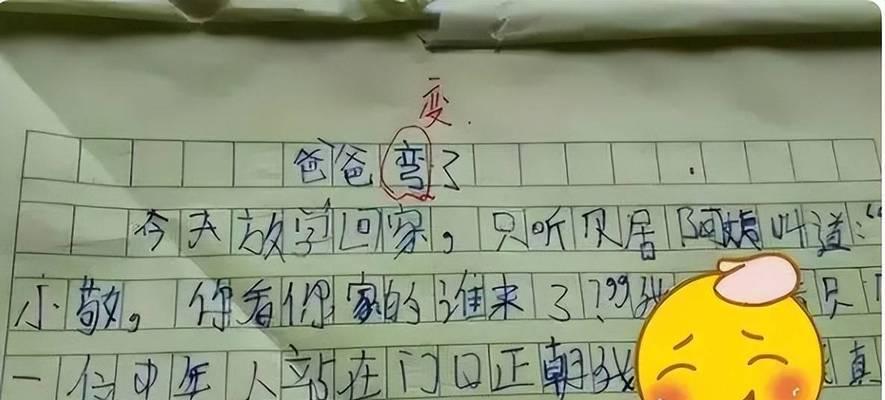 变.
爸爸弯了
今天放学回家，只听见居阿姨叫道：“
小敬，你看你家的谁来了？”我
一位中年人站在门口正朝我真